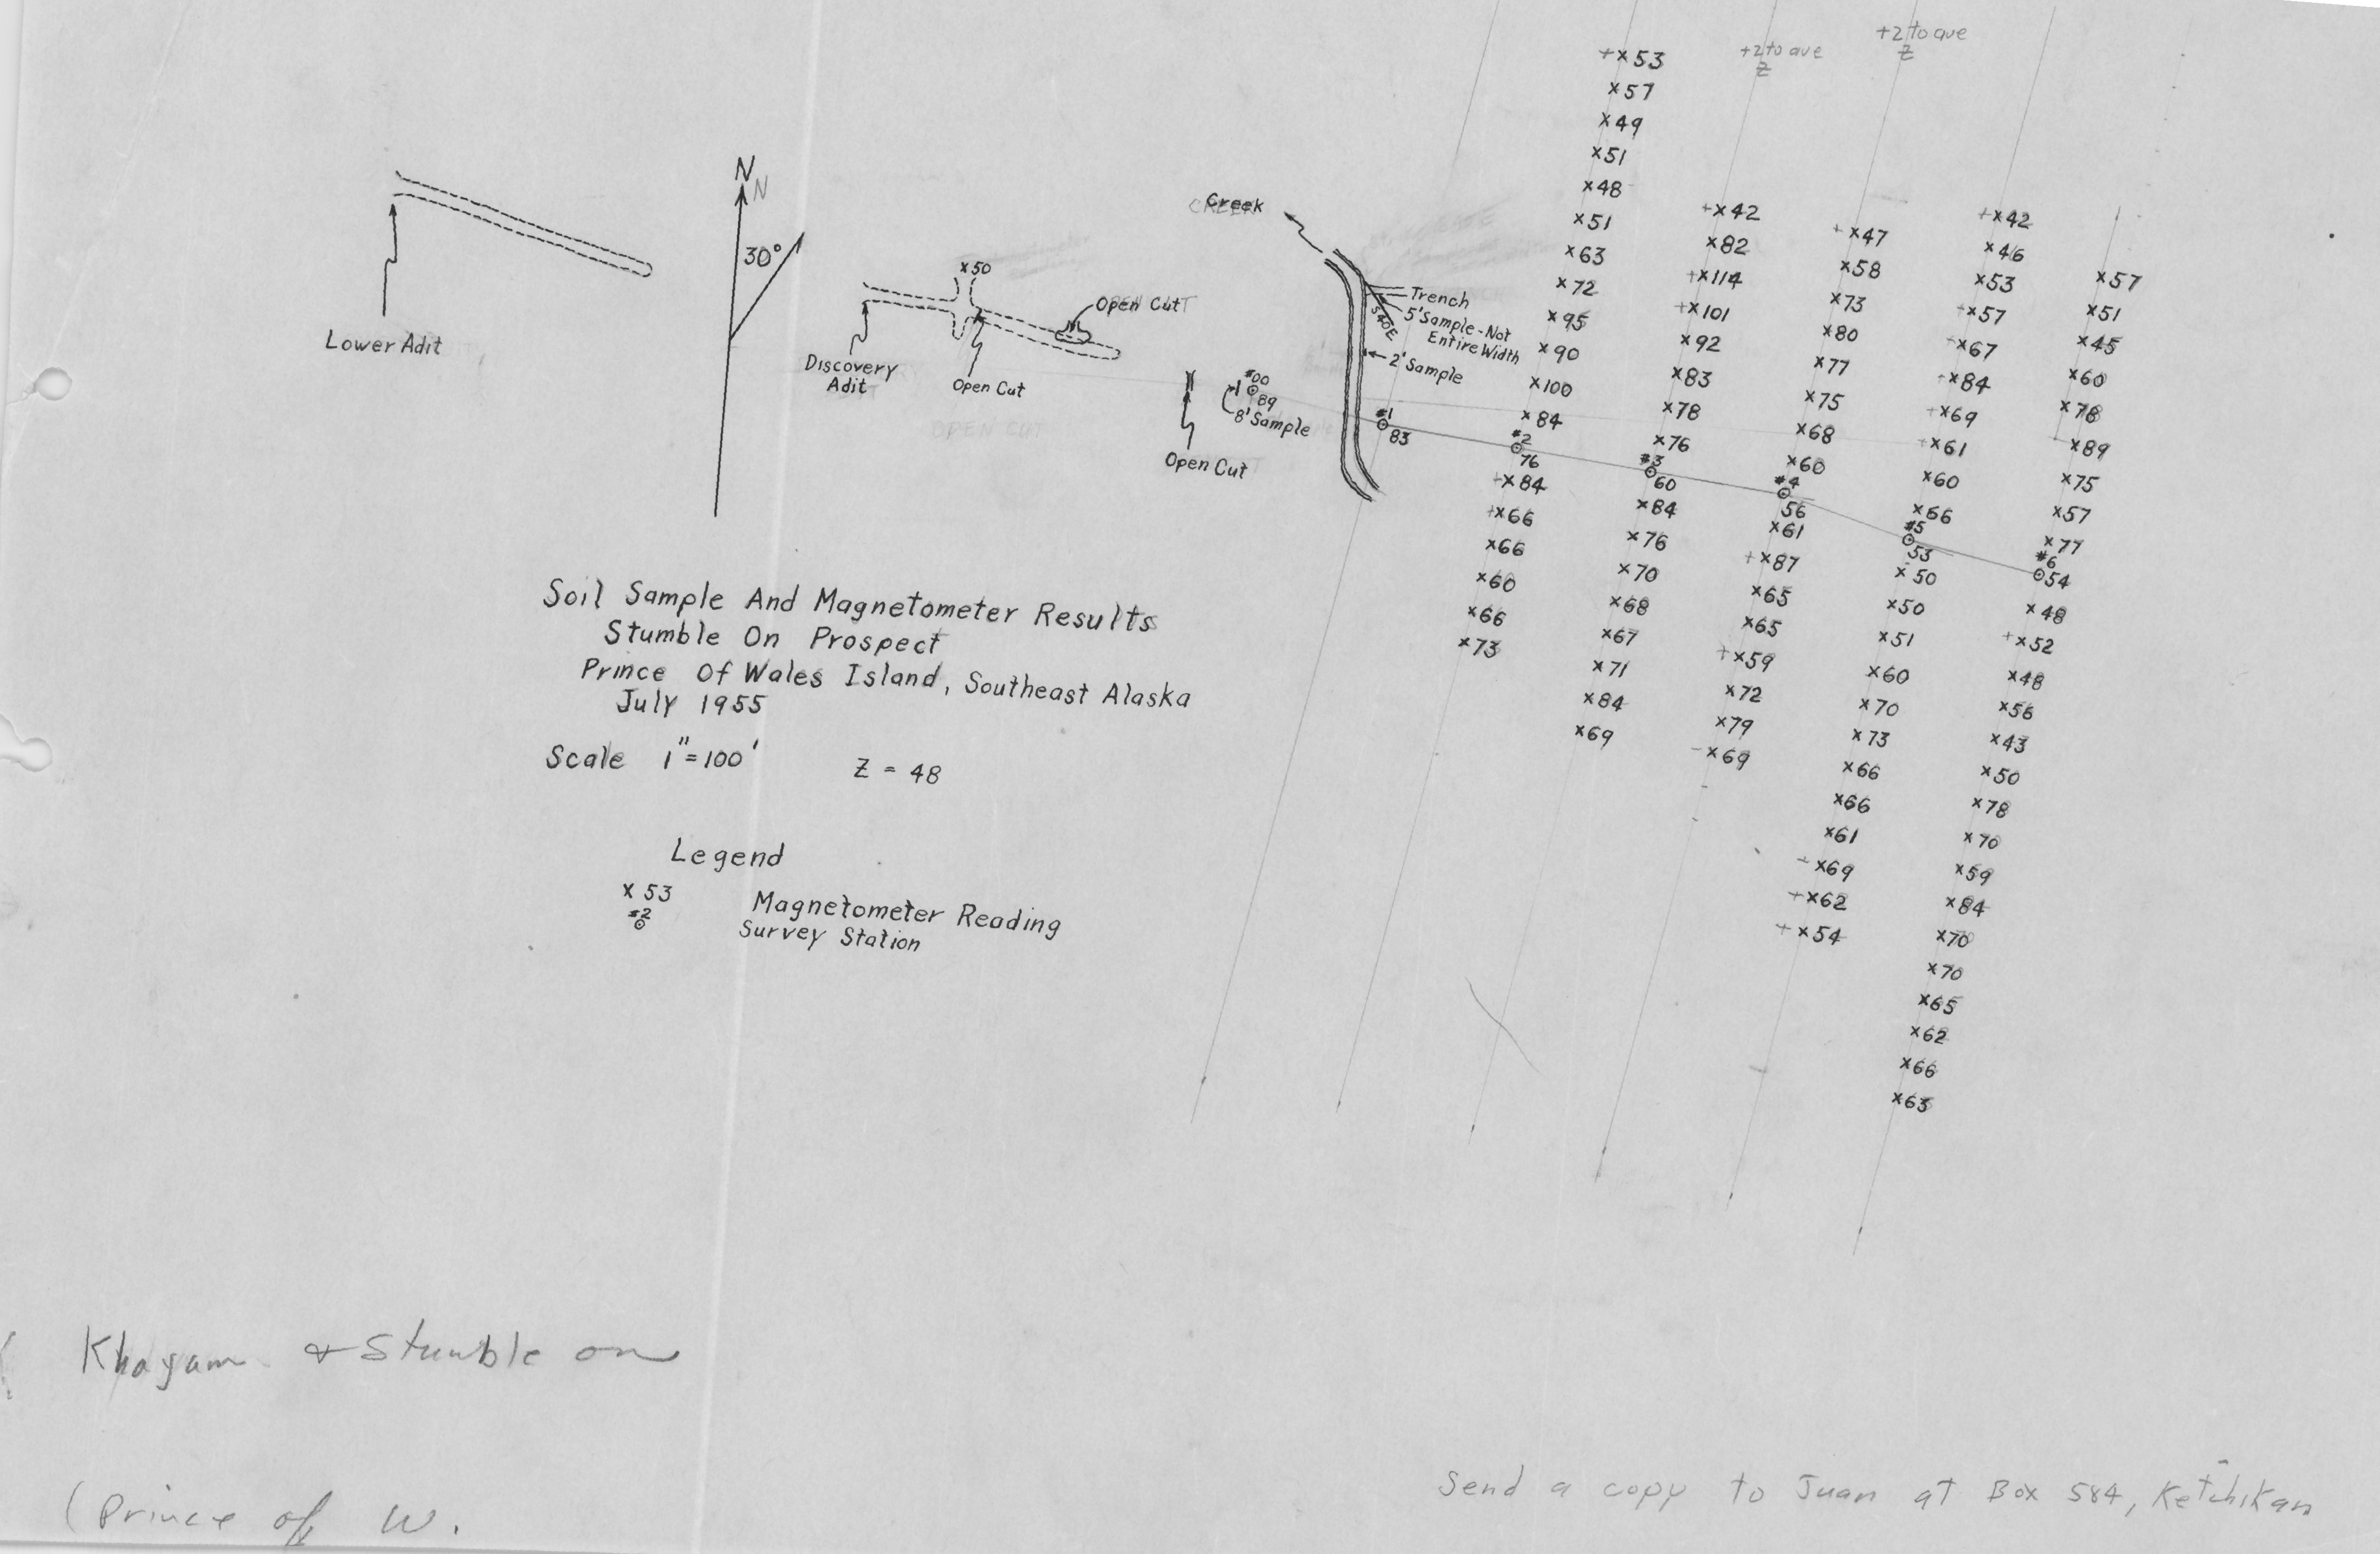 +2 to ave
Z
+2 to ave
Z
N
N
30°
Lower Adit
x50
Open Cut
Discovery
Adit
Open Cut
Open Cut
#00
1
89
8' Sample
Creek
Trench
5' Sample - Not
Entire Width
S40E
2' Sample
#1
83
+x53
x57
x49
x51
x48
x51
x63
x72
x95
x90
x100
x84
#2
76
+x84
+x66
x66
x60
x66
x73
+x42
x82
+x114
+x101
x92
x83
x78
x76
#3
60
x84
x76
x70
x68
x67
x71
x84
x69
+x47
x58
x73
x80
x77
x75
x68
x60
#4
56
x61
+x87
x65
x65
+x59
x72
x79
-x69
+x42
x46
x53
x57
x67
x84
+x69
+x61
x60
x66
#5
53
x50
x50
x51
x60
x70
x73
x66
x66
x61
-x69
+x62
+x54
x57
x51
x45
x60
x78
x89
x75
x57
x77
#6
54
x48
+x52
x48
x56
x43
x50
x78
x70
x59
x84
x70
x70
x65
x62
x66
x63
Soil Sample And Magnetometer Results
Stumble On Prospect
Prince Of Wales Island, Southeast Alaska
July 1955
Scale 1"=100' Z = 48
Legend
x 53 Magnetometer Reading
#2 Survey Station
Khayam & Stumble on
(Prince of W.
Send a copy to Juan at Box 584, Ketchikan